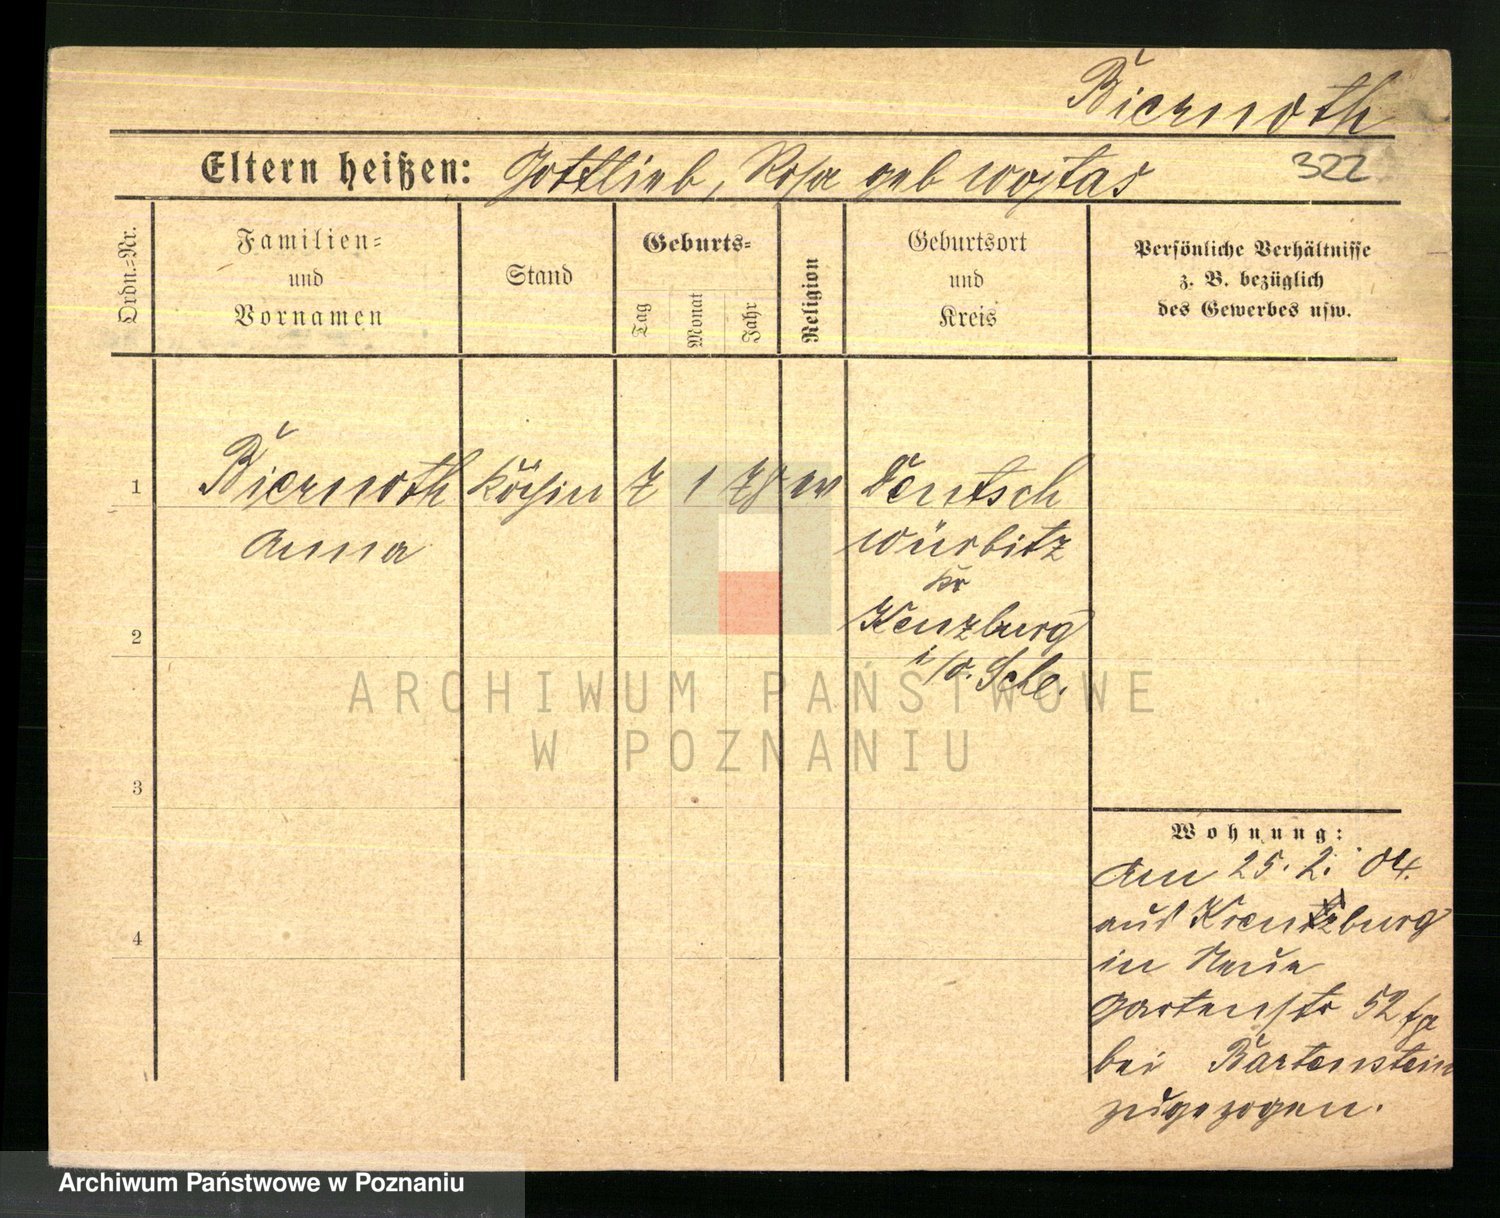 Biernoth
Eltern heißen: Gottlieb, Rosa geb Wojtas
322
Ordn.-Nr.
Familien-
und
Vornamen
Stand
Geburts-
Tag
Monat
Jahr
Religion
Geburtsort
und
Kreis
Persönliche Verhältnisse
z. B. bezüglich
des Gewerbes usw.
1
Biernoth Köchin 7 1 78 ev Deutsch
Anna
würbitz
Kr
2
Kreuzburg
i/O. Schle.
ARCHIWUM PAŃSTWOWE
W POZNANIU
3
4
Wohnung:
Am 25. 2. 04.
aus Kreutzburg
in Neue
Gartenstr 52
bei Bartenstein
zugezogen.
Archiwum Państwowe w Poznaniu